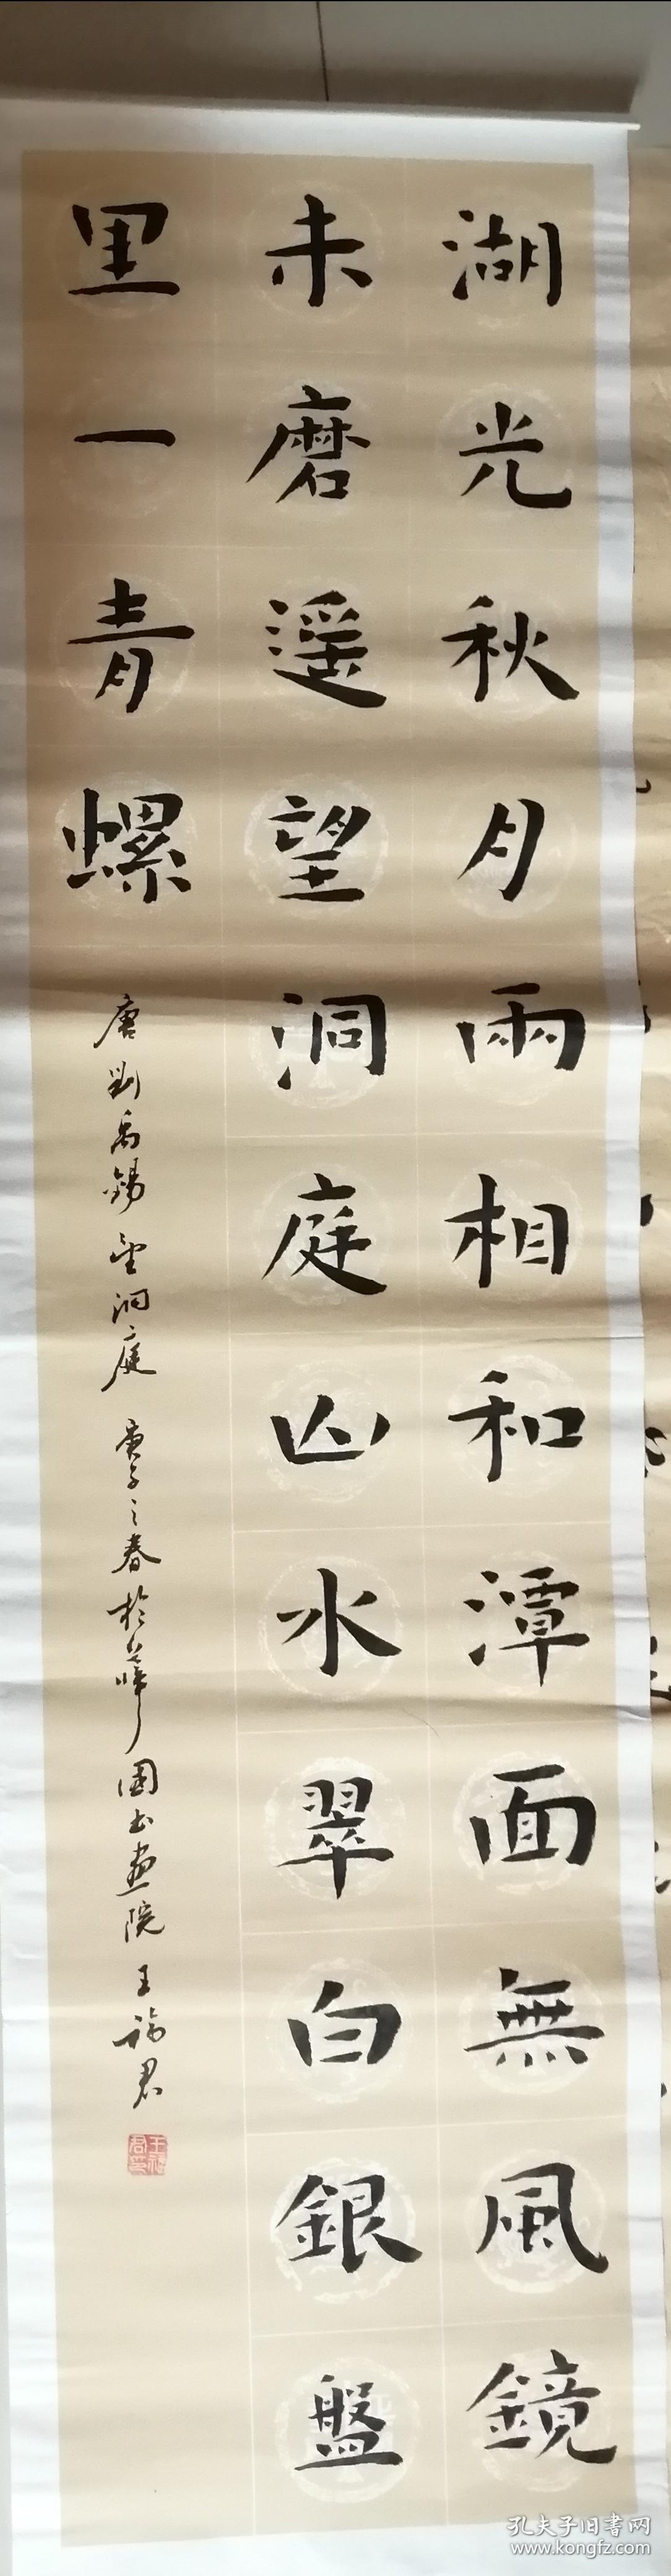 湖光秋月兩相和潭面無風鏡
未磨遥望洞庭山水翠白銀盤
里一青螺
唐劉禹錫望洞庭 庚子之春於華國書画院 王福君
孔夫子旧书网
www.kongfz.com